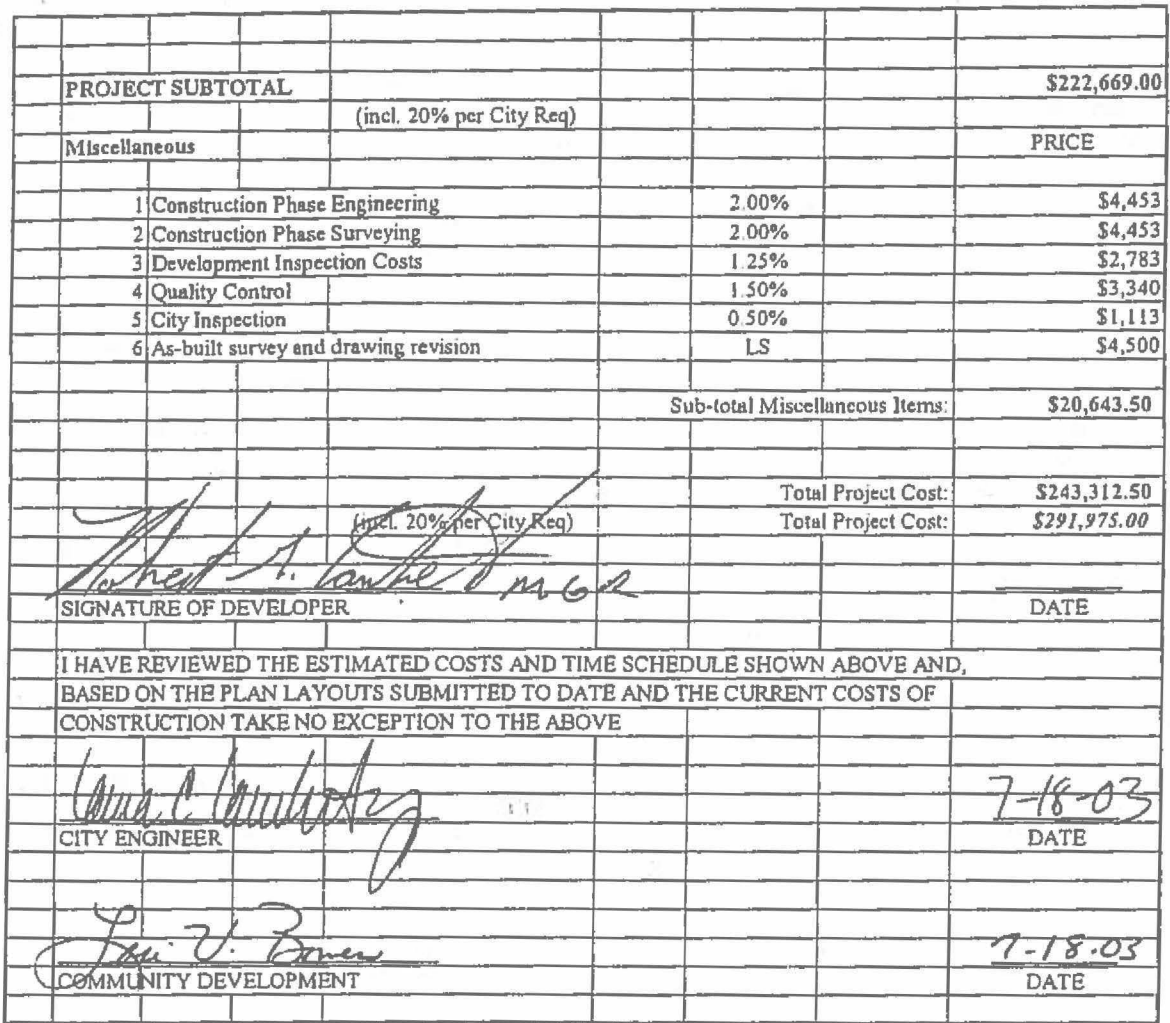 PROJECT SUBTOTAL $222,669.00
(incl. 20% per City Req)
Miscellaneous PRICE
1 Construction Phase Engineering 2.00% $4,453
2 Construction Phase Surveying 2.00% $4,453
3 Development Inspection Costs 1.25% $2,783
4 Quality Control 1.50% $3,340
5 City Inspection 0.50% $1,113
6 As-built survey and drawing revision LS $4,500
Sub-total Miscellaneous Items: $20,643.50
Total Project Cost: $243,312.50
(incl. 20% per City Req) Total Project Cost: $291,975.00
MGR
SIGNATURE OF DEVELOPER DATE
I HAVE REVIEWED THE ESTIMATED COSTS AND TIME SCHEDULE SHOWN ABOVE AND,
BASED ON THE PLAN LAYOUTS SUBMITTED TO DATE AND THE CURRENT COSTS OF
CONSTRUCTION TAKE NO EXCEPTION TO THE ABOVE
7-18-03
CITY ENGINEER DATE
V. 7-18-03
COMMUNITY DEVELOPMENT DATE